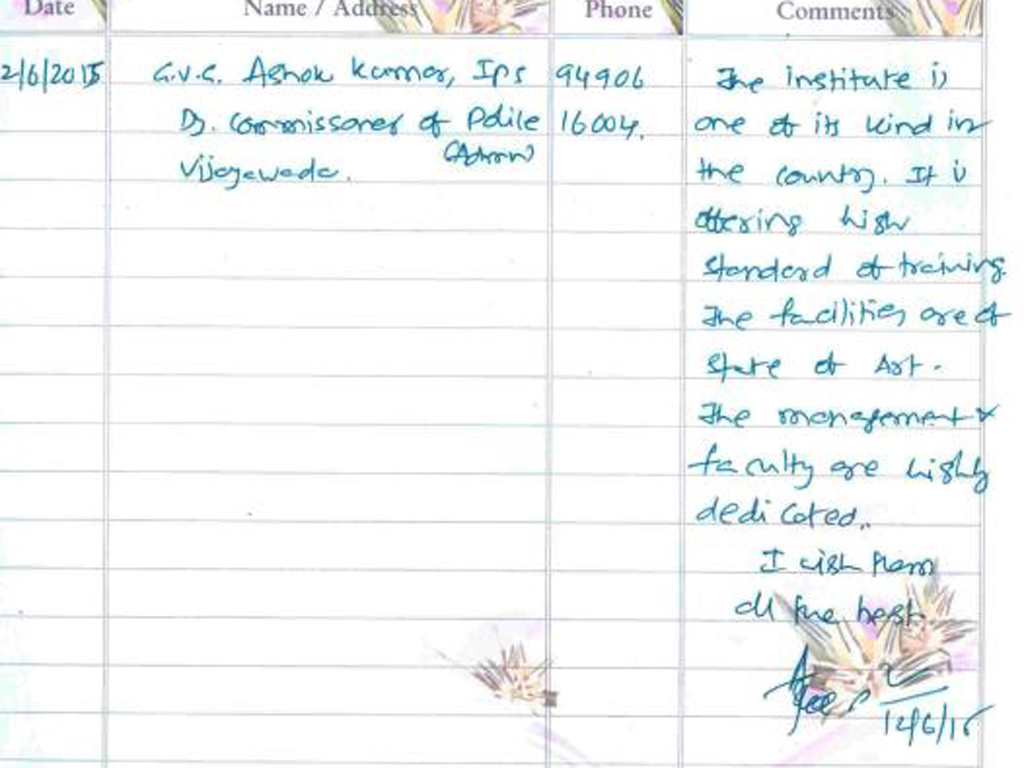 Date Name / Address Phone Comments
2/6/2015 G.V.G. Ashok Kumar, IPS 94906 The institute is
Dy. Commissoner of Police 16004. one of its kind in
(Admn)
Vijayawada. the country. It is
offering high
standard of training.
The facilities are of
State of Art.
The management &
faculty are highly
dedicated.
I wish them
all the best.
12/6/15